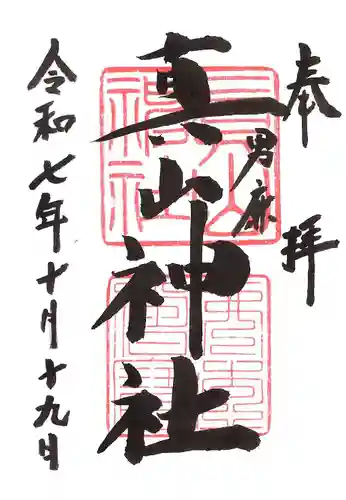 奉拝
男鹿
真山神社
令和七年十月十九日